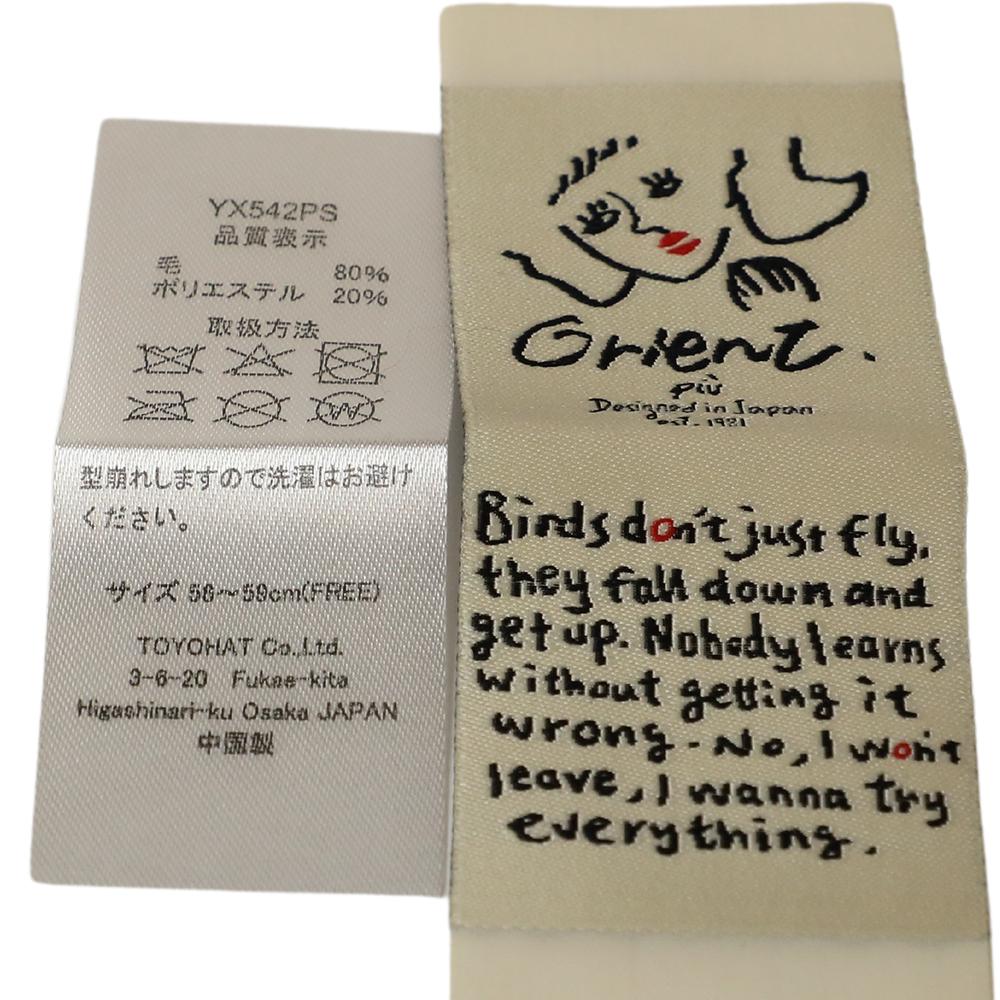 YX542PS
品質表示
毛 80%
ポリエステル 20%
取扱方法
型崩れしますので洗濯はお避け
ください。
サイズ 56～59cm(FREE)
TOYOHAT Co.,Ltd.
3-6-20 Fukae-kita
Higashinari-ku Osaka JAPAN
中国製
Orient.
più
Designed in Japan
est. 1981
Birds don't just fly,
they fall down and
get up. Nobody learns
without getting it
wrong. No, I won't
leave, I wanna try
everything.